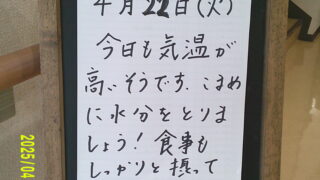 4月22日(火)
今日も気温が
高いそうです。こまめ
に水分をとりま
しょう！食事も
しっかりと摂って
2025/04